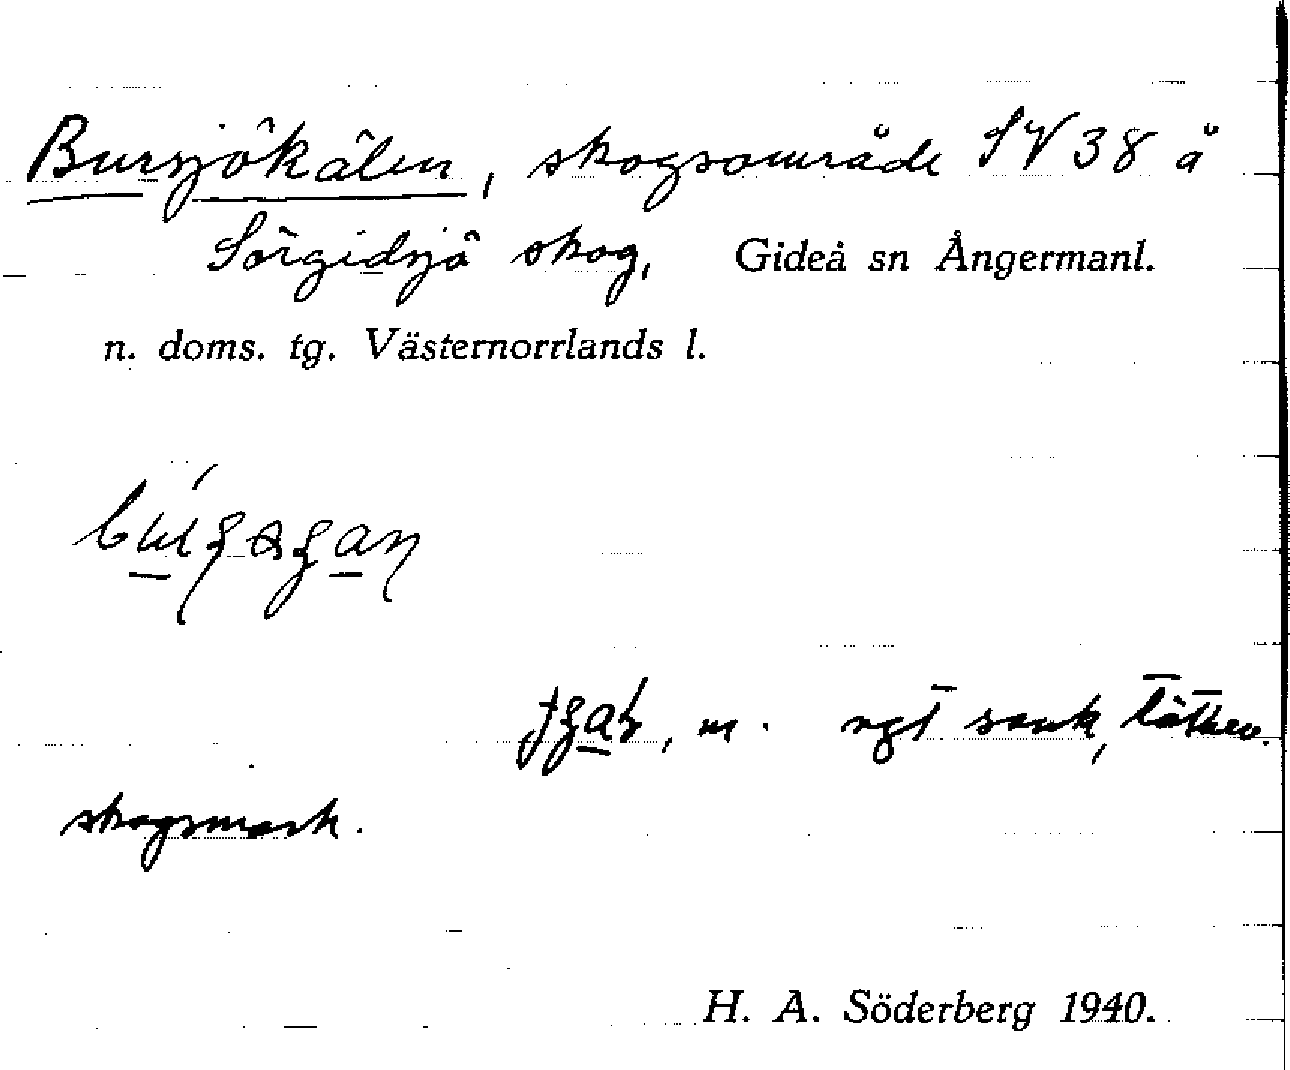 Bursjökälen, skogsområde SV 38 å
Sörgidsjö skog, Gideå sn Ångermanl.
n. doms. tg. Västernorrlands l.
m. ngt sank,
skogsmark.
H. A. Söderberg 1940.